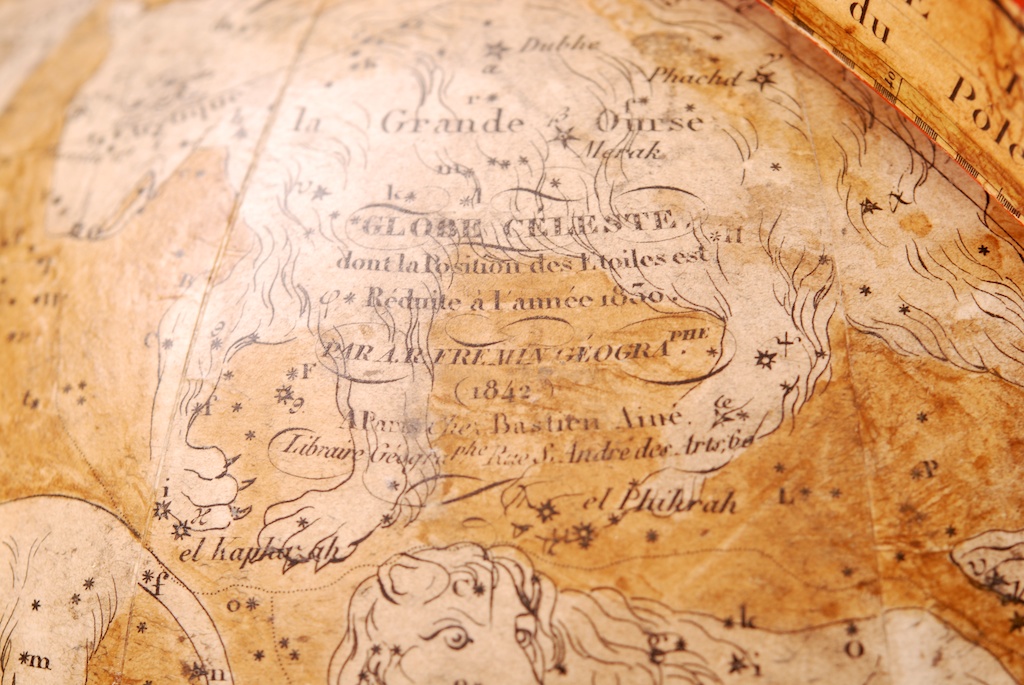 du
Pôle
10
Dubhe
Phachd γ
la Grande Ourse
β
Merak
m
k l
χ
GLOBE CELESTE,
H
dont la Position des Etoiles est
φ Réduite à l'année 1830.
PAR A.R. FREMIN GÉOGRA.PHE
F
(1842)
A Paris chez Bastien Aîné.
Libraire Géographe Rue S. André des Arts, 60
f
P
L
el Phikrah
i
ϰ
el Kaphzah
f
o
c
k
g
i
o
m
n